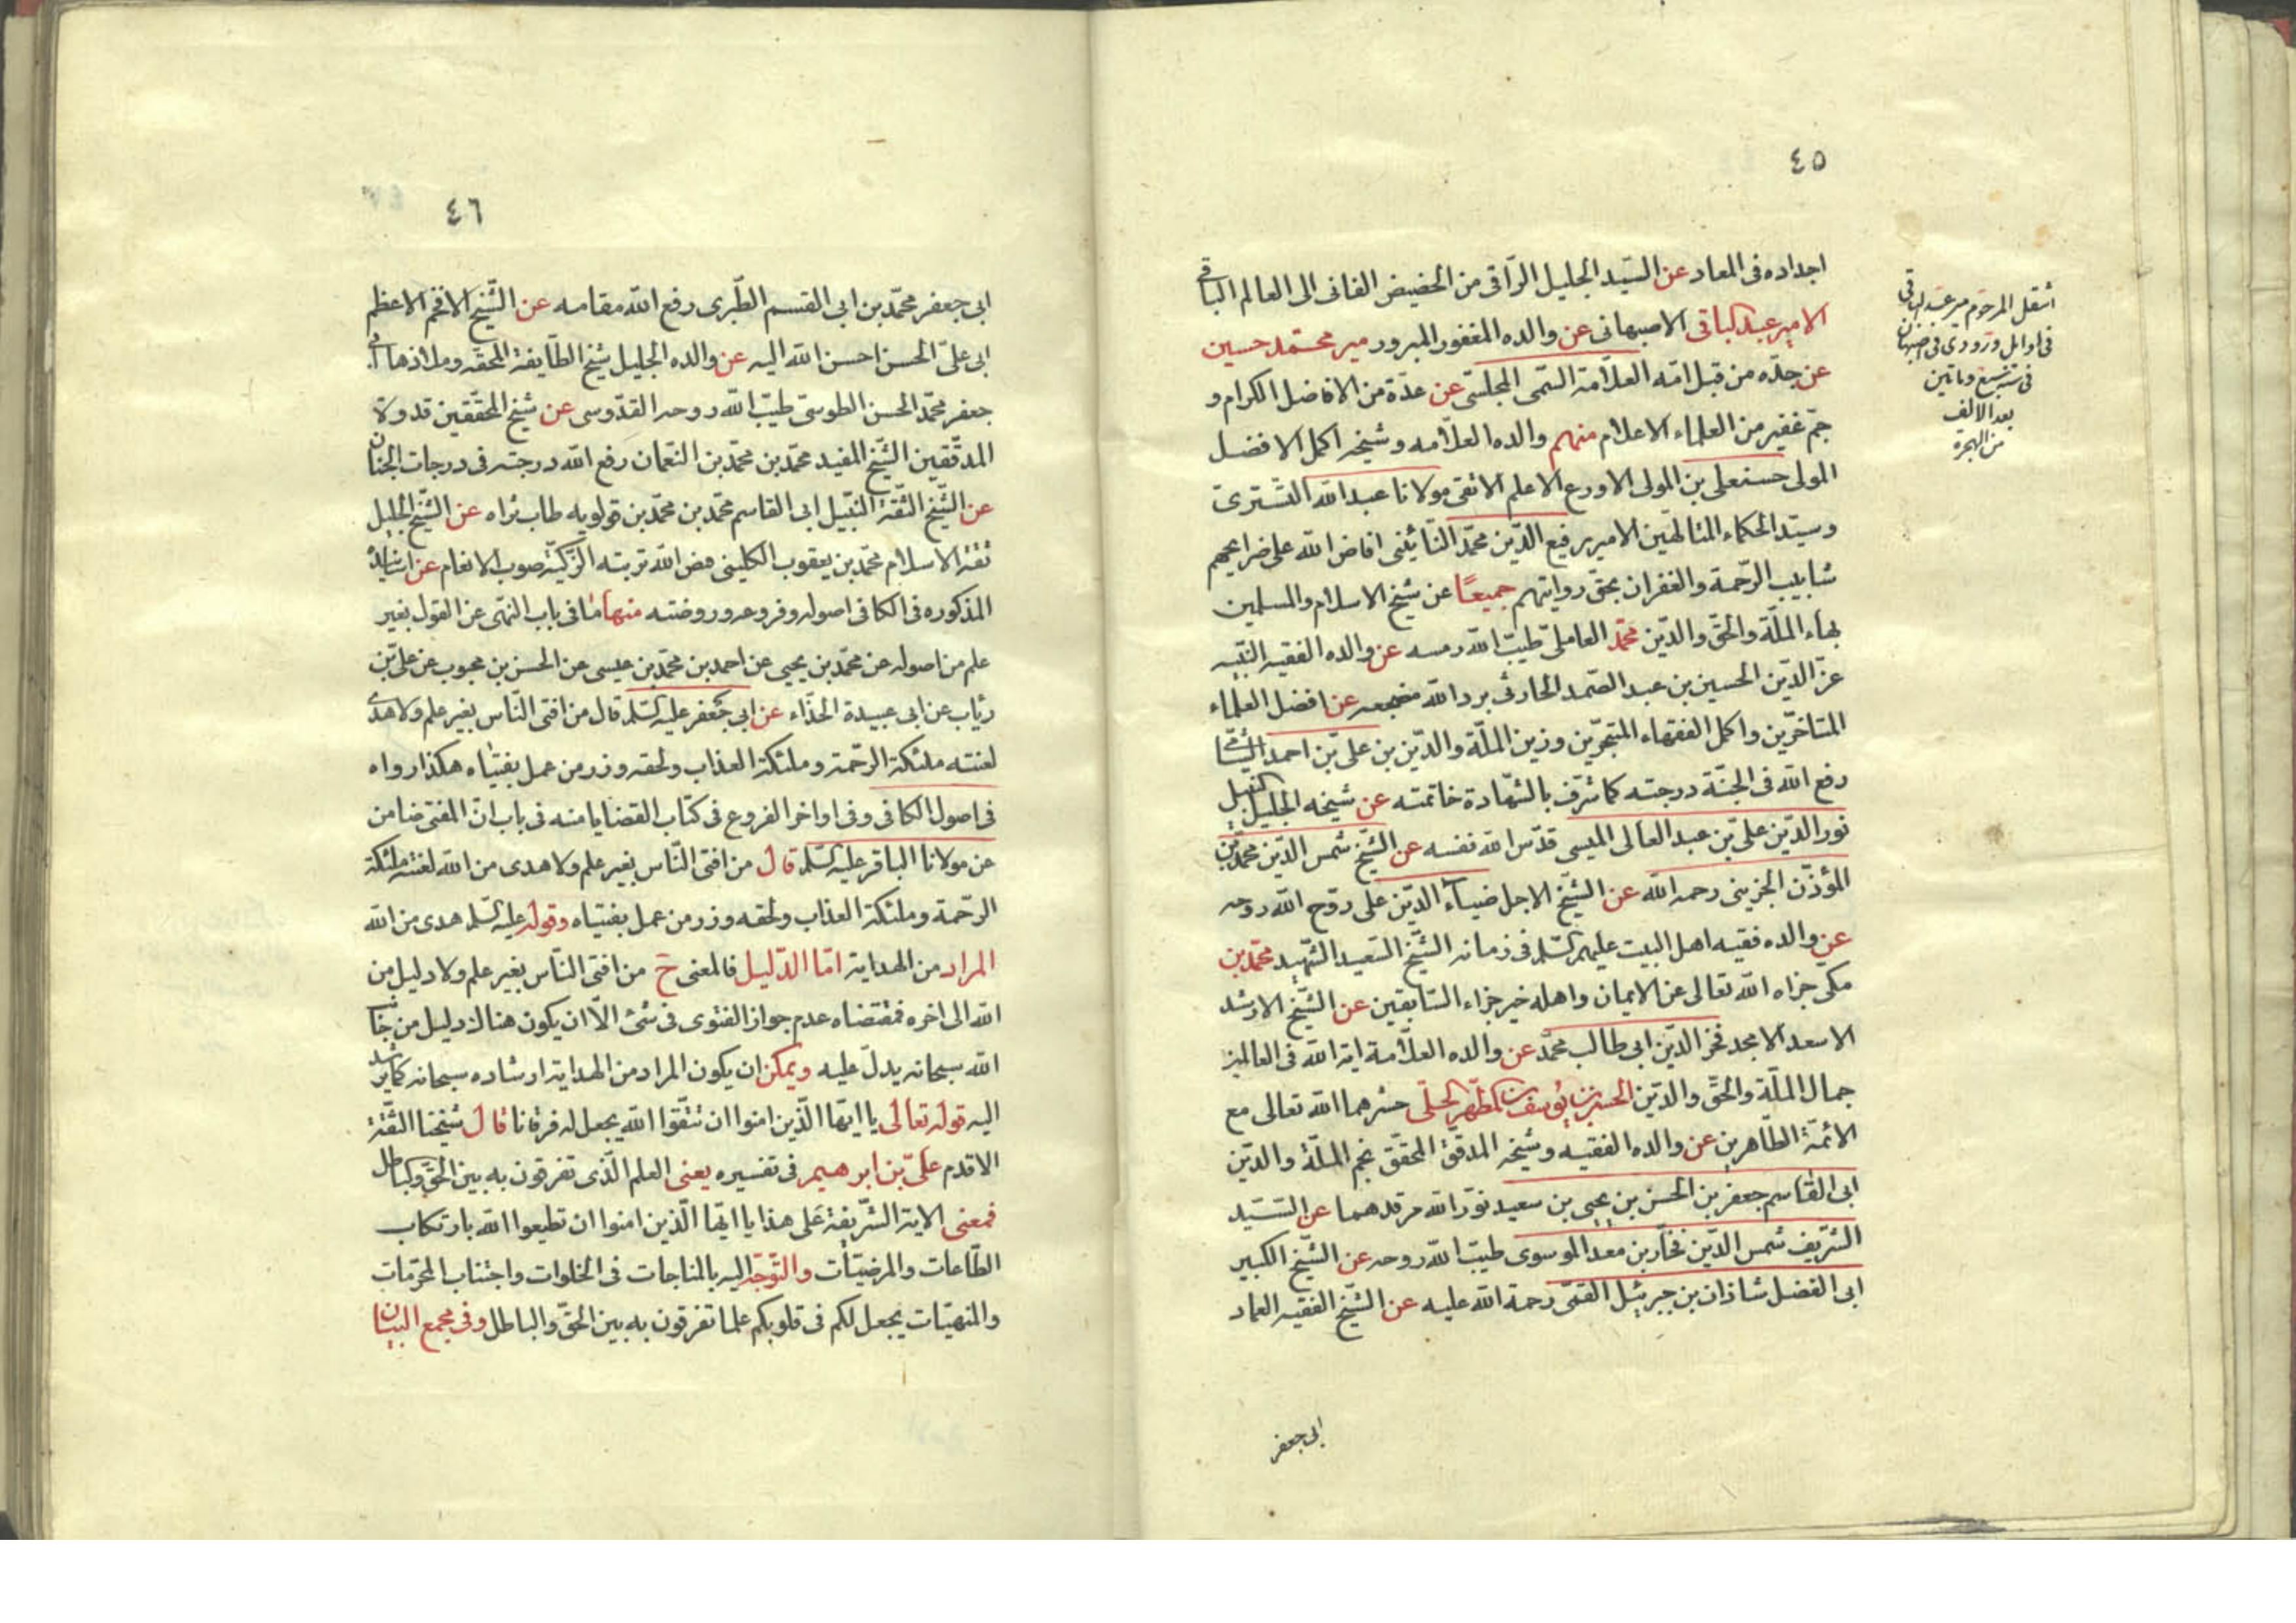 ٤٥
اجداده فى المعاد عن السّيد الجليل الرّاقى من الحضيض الفانى الى العالم الباقى
الامير عبد الباقى الاصبهانى عن والده المغفور المبرور مير محمّد حسين
عن جدّه من قبل امّه العلّامة السّمى المجلسّى عن عدّة من الافاضل الكرام و
جمّ غفير من العلماء الاعلام منهم والده العلّامه وشيخه اكمل الافضل
المولى حسنعلى بن المولى الاورع الاعلم الاتقى مولانا عبد الله التسّترىّ
وسيّد الحكماء المتالّهين الامير رفيع الدّين محمّد النّائينى افاض الله على ضرايحهم
شابيب الرّحمة والغفران بحقّ روايتهم جميعًا عن شيخ الاسلام والمسلمين
بهاء الملّة والحقّ والدّين محمّد العاملىّ طيّب الله رمسه عن والده الفقيه النّبيه
عزّ الدّين الحسين بن عبد الصّمد الحارثى برد الله مضجعه عن افضل العلماء
المتاخّرين واكمل الفقهاء المتبحّرين وزين الملّة والدّين بن علىّ بن احمد الشّامى
رفع الله فى الجنّة درجته كما شرّف بالشّهادة خاتمته عن شيخه الجليل النبيل
نور الدّين علىّ بن عبد العالى الميسى قدّس الله نفسه عن الشّيخ شمس الدّين محمّد بن
المؤذّن الجزينى رحمه الله عن الشّيخ الاجل ضياء الدّين على روّح الله روحه
عن والده فقيه اهل البيت عليهم السّلم فى زمانه الشّيخ السّعيد الشّهيد محمّد بن
مكّى جزاه الله تعالى عن الايمان واهله خير جزاء السّابقين عن الشّيخ الارشد
الاسعد الامجد فخر الدّين ابى طالب محمّد عن والده العلّامة اية الله فى العالمين
جمال الملّة والحقّ والدّين الحسن بن يوسف بن المطّهر الحلّى حشرهما الله تعالى مع
الائمّة الطّاهرين عن والده الفقيه وشيخه المدقّق المحقّق نجم الملّة والدّين
ابى القاسم جعفر بن الحسن بن يحيى بن سعيد نوّر الله مرقدهما عن السّيّد
الشّريف شمس الدّين فخّار بن معد الموسوى طيّب الله روحه عن الشّيخ الكبير
ابى الفضل شاذان بن جبرئيل القمّى رحمة الله عليه عن الشّيخ الفقيه العماد
ابى جعفر
انتقل المرحوم مير عبد الباقى
فى اوايل ورودى فى اصبهان
فى سنة سبع وماتين
بعد الالف
من الهجرة
٤٦
ابى جعفر محمّد بن ابى القسم الطّبرى رفع الله مقامه عن الشّيخ الافخم الاعظم
ابى علىّ الحسن احسن الله اليه عن والده الجليل شيخ الطّايفة المحقّه وملاذها ابى
جعفر محمّد الحسن الطوسىّ طيّب الله روحه القدّوسى عن شيخ المحقّقين قدوة
المدقّقين الشّيخ المفيد محمّد بن محمّد بن النّعمان رفع الله درجته فى درجات الجنان
عن الشّيخ الثّقة النّبيل ابى القاسم محمّد بن محمّد بن قولويه طاب ثراه عن الشّيخ الجليل
ثقة الاسلام محمّد بن يعقوب الكلينى مض الله تربته الزّكيّة صوب الانعام عن اسانيده
المذكوره فى الكافى اصوله وفروعه وروضته منها ما فى باب النّهى عن القول بغير
علم من اصوله عن محمّد بن يحيى عن احمد بن محمّد بن عيسى عن الحسن بن محبوب عن علىّ بن
رئاب عن ابى عبيدة الحذّاء عن ابى جعفر عليه السّلم قال من افتى النّاس بغير علم ولا هدى
لعنته ملئكة الرّحمة وملئكة العذاب ولحقه وزر من عمل بفتياه هكذا رواه
فى اصول الكافى وفى اواخر الفروع فى كتاب القضايا منه فى باب انّ المفتى ضامن
عن مولانا الباقر عليه السّلم قال من افتى النّاس بغير علم ولا هدى من الله لعنته ملئكة
الرّحمة وملئكة العذاب ولحقه وزر من عمل بفتياه وقوله عليه السّلم هدى من الله
المراد من الهداية امّا الدّليل فالمعنى ح من افتى النّاس بغير علم ولا دليل من
الله الى اخره فمقتضاه عدم جواز الفتوى فى شئ الّا ان يكون هناك دليل من جناب
الله سبحانه يدلّ عليه ويمكن ان يكون المراد من الهداية ارشاده سبحانه كما يرشد
اليه قوله تعالى يا ايّها الّذين امنوا ان تتّقوا الله يجعل له فرقانا قال شيخنا الثّقة
الاقدم علىّ بن ابرهيم فى تفسيره يعنى العلم الّذى تفرقون به بين الحقّ والباطل
فمعنى الاية الشّريفة على هذا يا ايّها الّذين امنوا ان تطيعوا الله بارتكاب
الطّاعات والمرضيّات والتّوجّه اليه بالمناجات فى الخلوات واجتناب المحرّمات
والمنهيّات يجعل لكم فى قلوبكم علما تفرقون به بين الحقّ والباطل وفى مجمع البيان